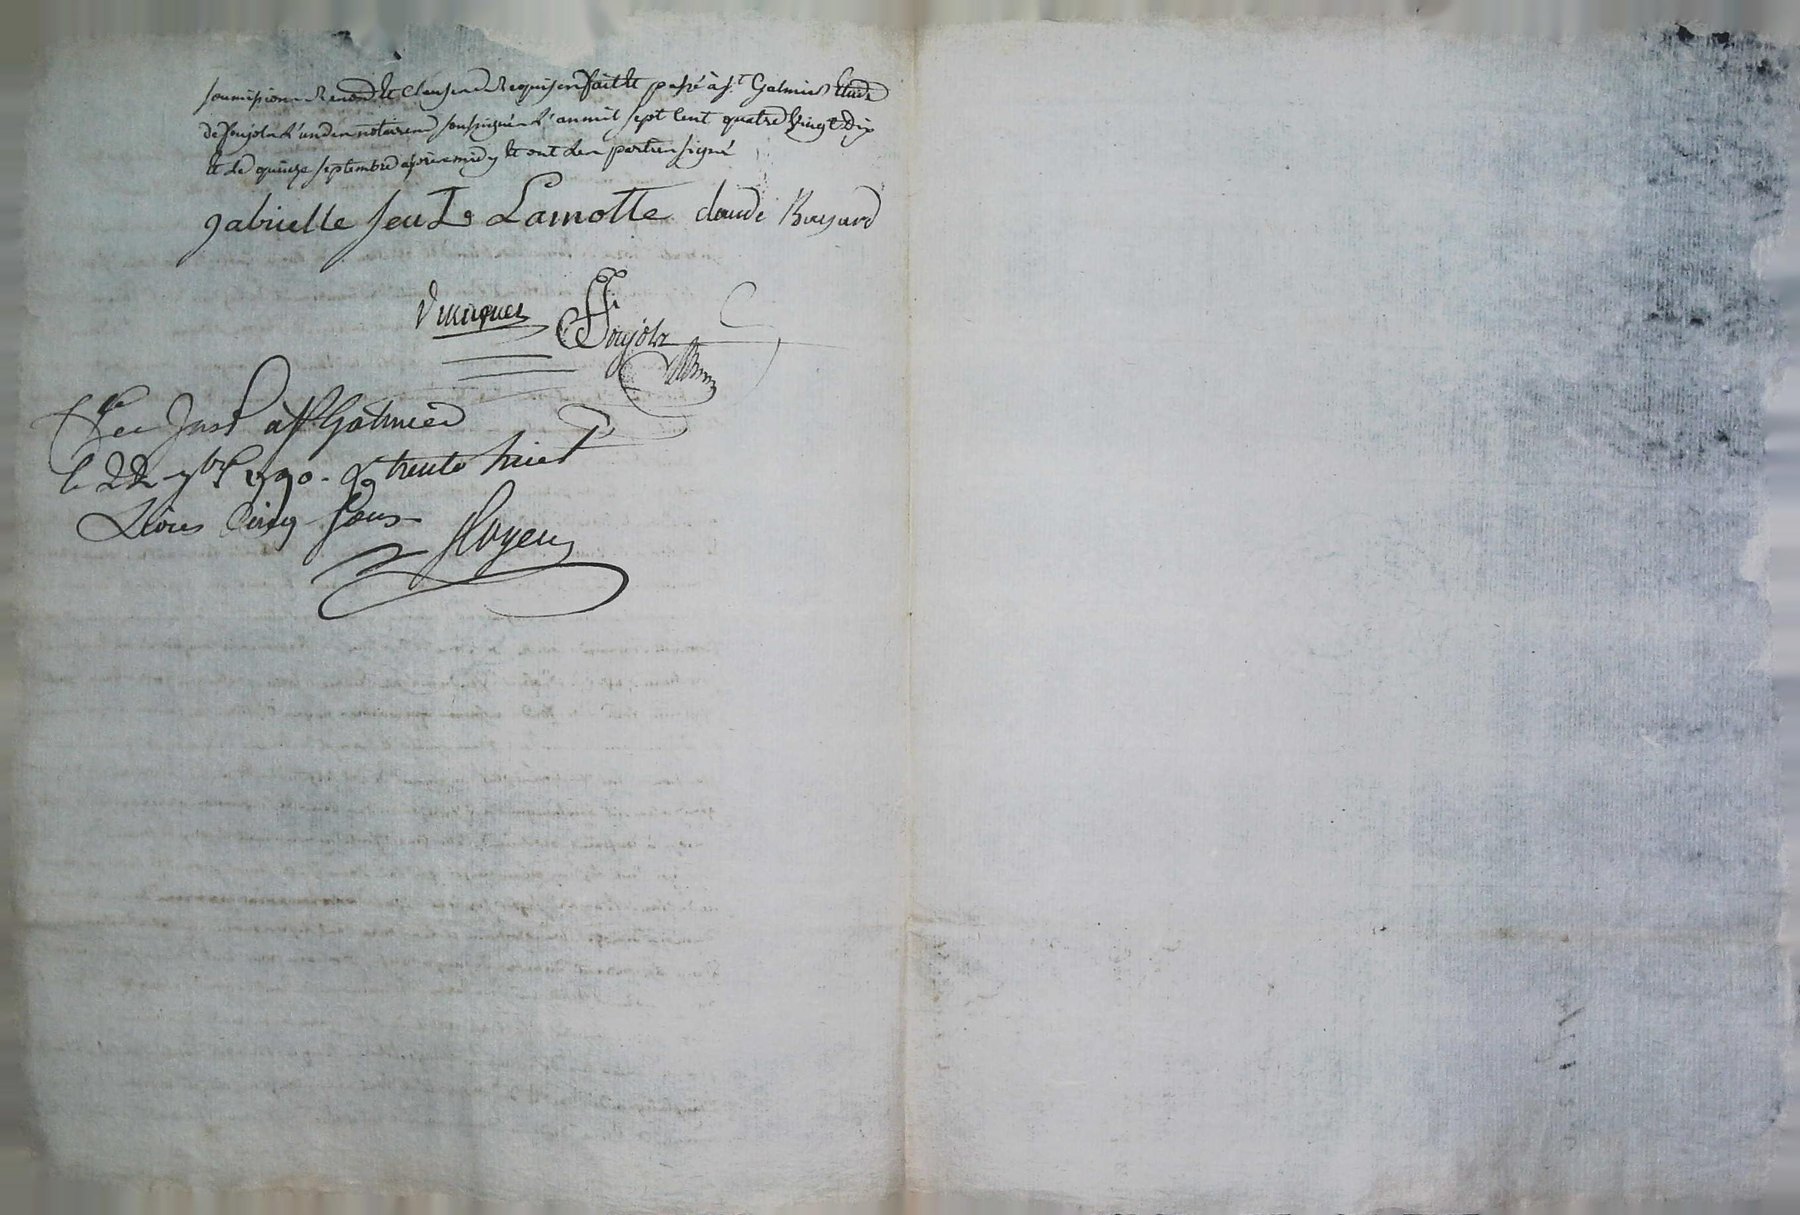 soumisions Renon et Clauses Requises fait et passé à st Galmier Etude
de Poujols l'un des notaires soussignés L'an mil sept Cent quatre Vingt Dix
et Le quinze septembre apres midy et ont Les parties signé
gabrielle Lamotte claude Bayard
Poujols
à st Galmier
le 22 7bre 1790. R trente huit
Livres Cinq Sous